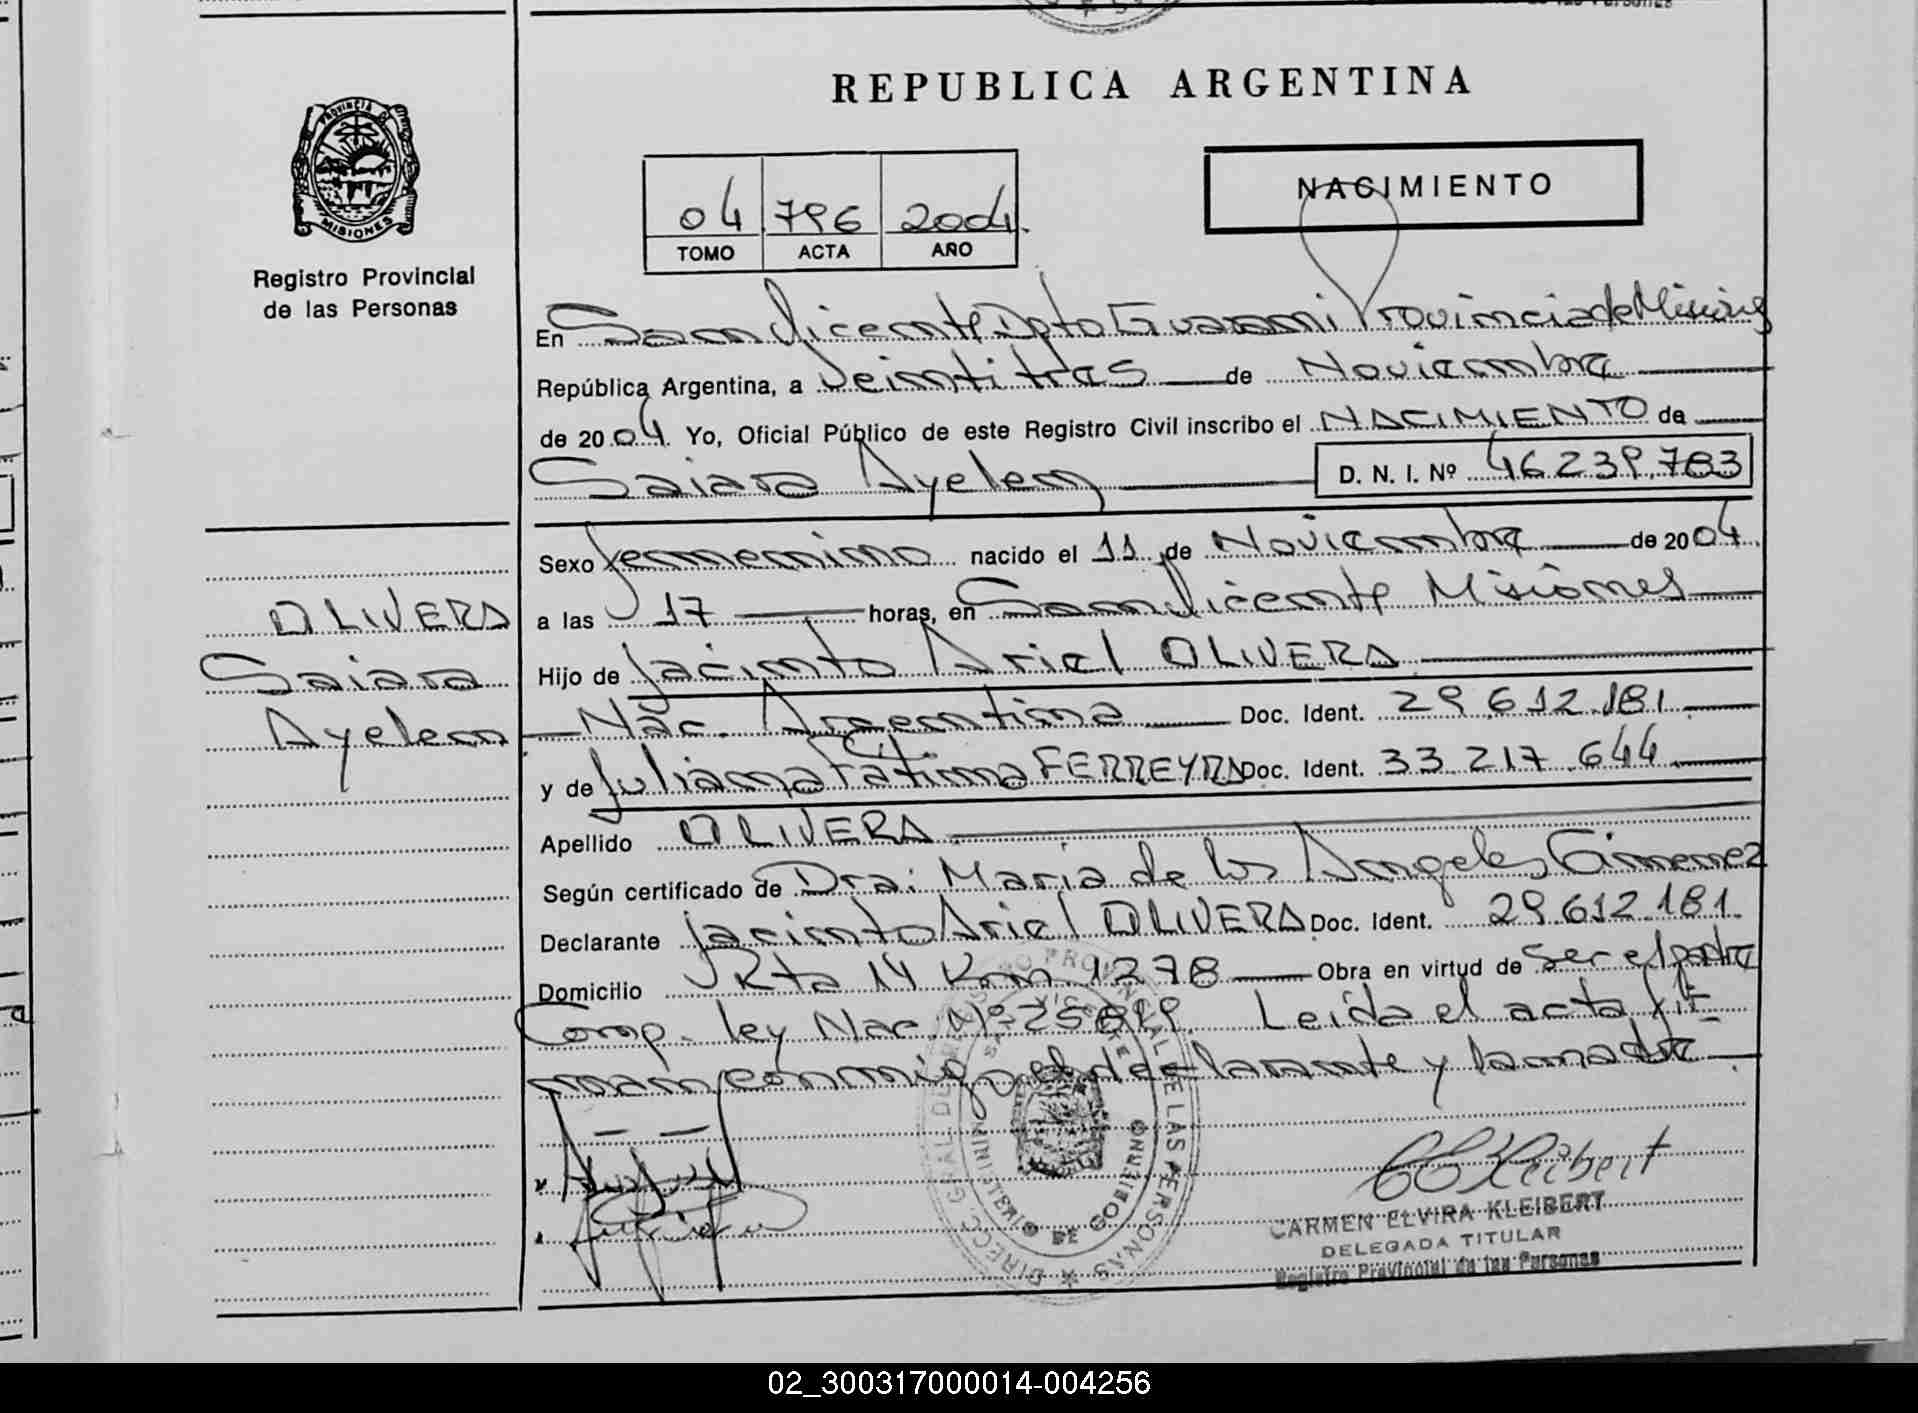 REPUBLICA ARGENTINA
PROVINCIA DE
MISIONES
Registro Provincial
de las Personas
04 796 2004
TOMO ACTA AÑO
NACIMIENTO
En San Vicente Dpto Guarani Provincia de Misiones
República Argentina, a Veintitres de Noviembre
de 2004. Yo, Oficial Público de este Registro Civil inscribo el NACIMIENTO de
Saiara Ayelen D. N. I. Nº 46.239.783
Sexo femenino nacido el 11 de Noviembre de 2004
a las 17 horas, en San Vicente Misiones
Hijo de Jacinto Ariel OLIVERA
Nac. Argentina Doc. Ident. 29.612.181
y de Juliana Fatima FERREYRA Doc. Ident. 33.217.644
Apellido OLIVERA
Según certificado de Dra. Maria de los Angeles Gimenez
Declarante Jacinto Ariel OLIVERA Doc. Ident. 29.612.181
Domicilio Rta 14 Km 1278 Obra en virtud de ser el padre
Comp. ley Nac. Nº Leída el acta fir
man conmigo el declarante y la madre
OLIVERA
Saiara
Ayelen
DIREC. GRAL DE REGISTRO PROVINCIAL DE LAS PERSONAS
MINISTERIO DE GOBIERNO
CARMEN ELVIRA KLEIBERT
DELEGADA TITULAR
Registro Provincial de las Personas
02_300317000014-004256